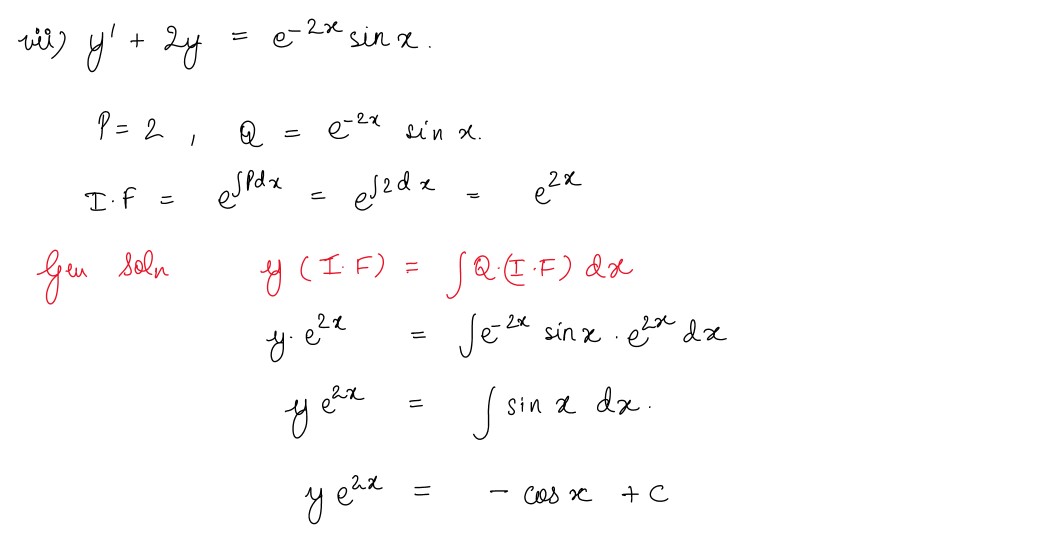 vii) y' + 2y = e^{-2x} sin x.
P = 2 , Q = e^{-2x} sin x.
I.F = e^{∫Pdx} = e^{∫2dx} = e^{2x}
Gen soln y (I.F) = ∫Q.(I.F) dx
y. e^{2x} = ∫e^{-2x} sin x . e^{2x} dx
y e^{2x} = ∫ sin x dx.
y e^{2x} = - cos x + c